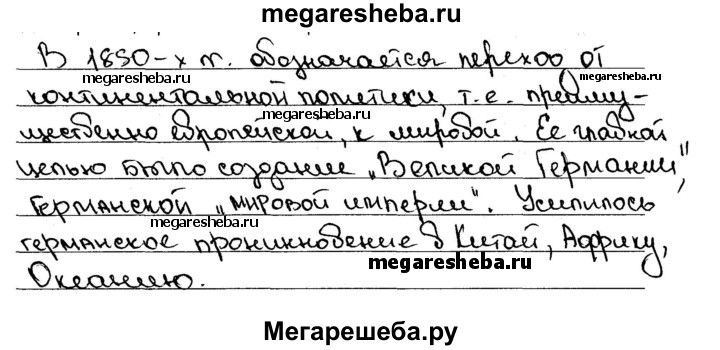 megaresheba.ru
В 1890-х гг. обозначается переход от
megaresheba.ru
megaresheba.ru
континентальной политики, т.е. преиму-
megaresheba.ru
щественно европейской, к мировой. Ее главной
целью было создание „Великой Германии",
megaresheba.ru
Германской „мировой империи". Усилилось
megaresheba.ru
германское проникновение в Китай, Африку,
megaresheba.ru
Океанию.
Мегарешеба.ру